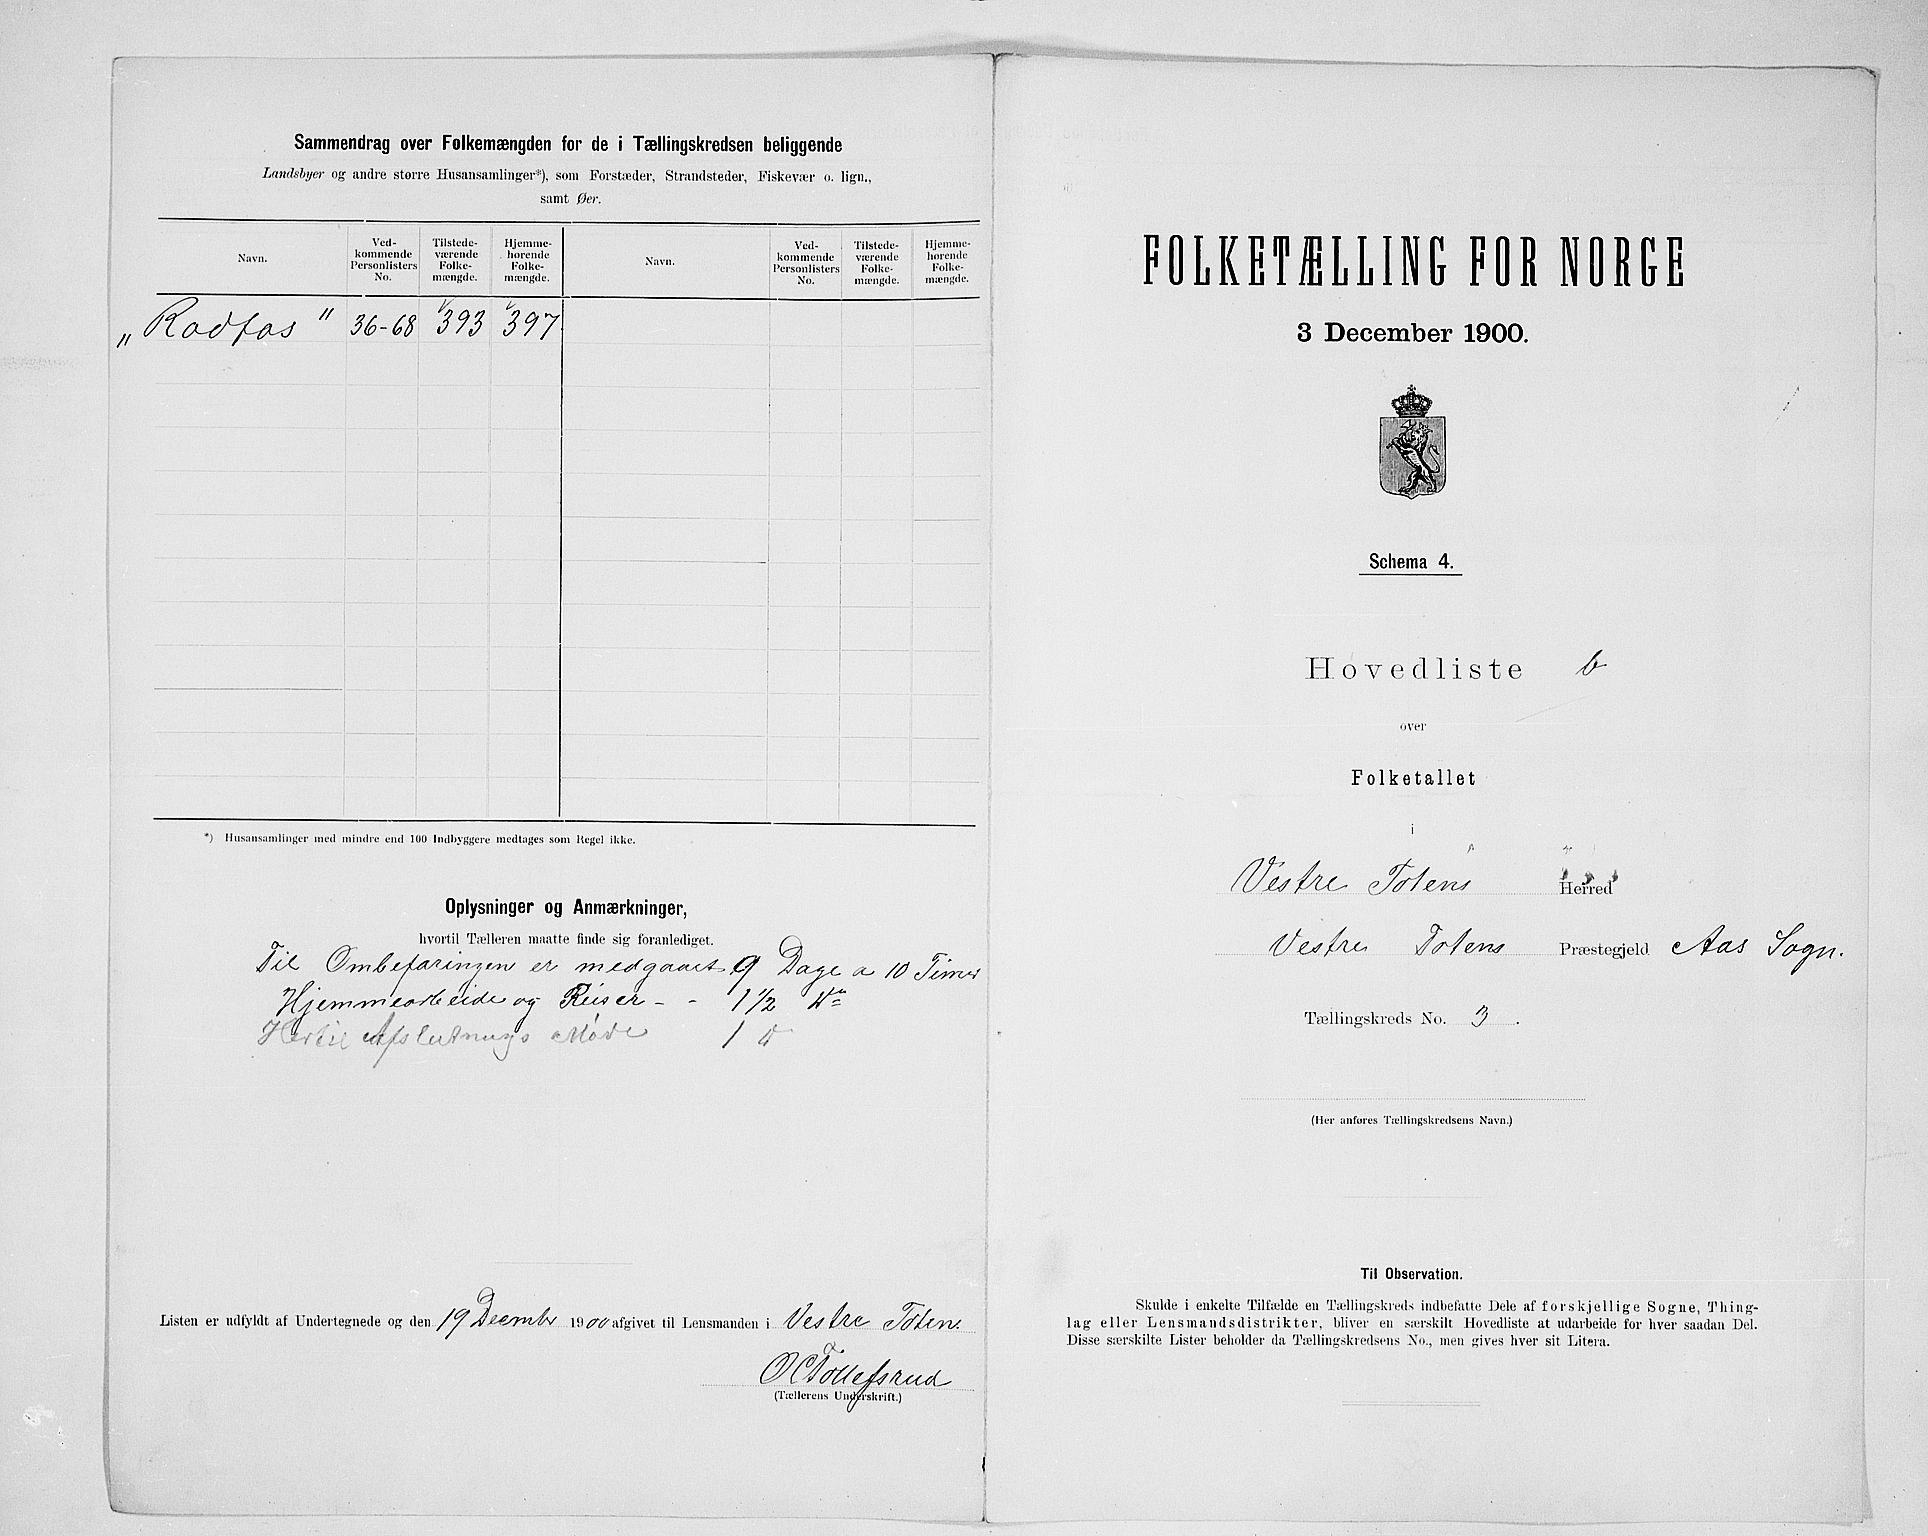 Sammendrag over Folkemængden for de i Tællingskredsen beliggende
Landsbyer og andre større Husansamlinger*), som Forstæder, Strandsteder, Fiskevær o. lign.,
samt Øer.
Navn.
Ved-
kommende
Personlisters
No.
Tilstede-
værende
Folke-
mængde.
Hjemme-
hørende
Folke-
mængde.
Navn.
Ved-
kommende
Personlisters
No.
Tilstede-
værende
Folke-
mængde.
Hjemme-
hørende
Folke-
mængde.
„Radfos" 36-68 393 397
*) Husansamlinger med mindre end 100 Indbyggere medtages som Regel ikke.
Oplysninger og Anmærkninger,
hvortil Tælleren maatte finde sig foranlediget.
Til Ombefaringen er medgaaet 9 Dage a 10 Timer
Hjemmearbeide og Reiser - - 1 1/2
Hertil Afslutnings Møde 1
Listen er udfyldt af Undertegnede og den 19 December 1900 afgivet til Lensmanden i Vestre Toten.
Tollefsrud
(Tællerens Underskrift.)
FOLKETÆLLING FOR NORGE
3 December 1900.
Schema 4.
Hovedliste b
over
Folketallet
i
Vestre Totens Herred
Vestre Totens Præstegjeld Aas Sogn.
Tællingskreds No. 3.
(Her anføres Tællingskredsens Navn.)
Til Observation.
Skulde i enkelte Tilfælde en Tællingskreds indbefatte Dele af forskjellige Sogne, Thing-
lag eller Lensmandsdistrikter, bliver en særskilt Hovedliste at udarbeide for hver saadan Del.
Disse særskilte Lister beholder da Tællingskredsens No., men gives hver sit Litera.